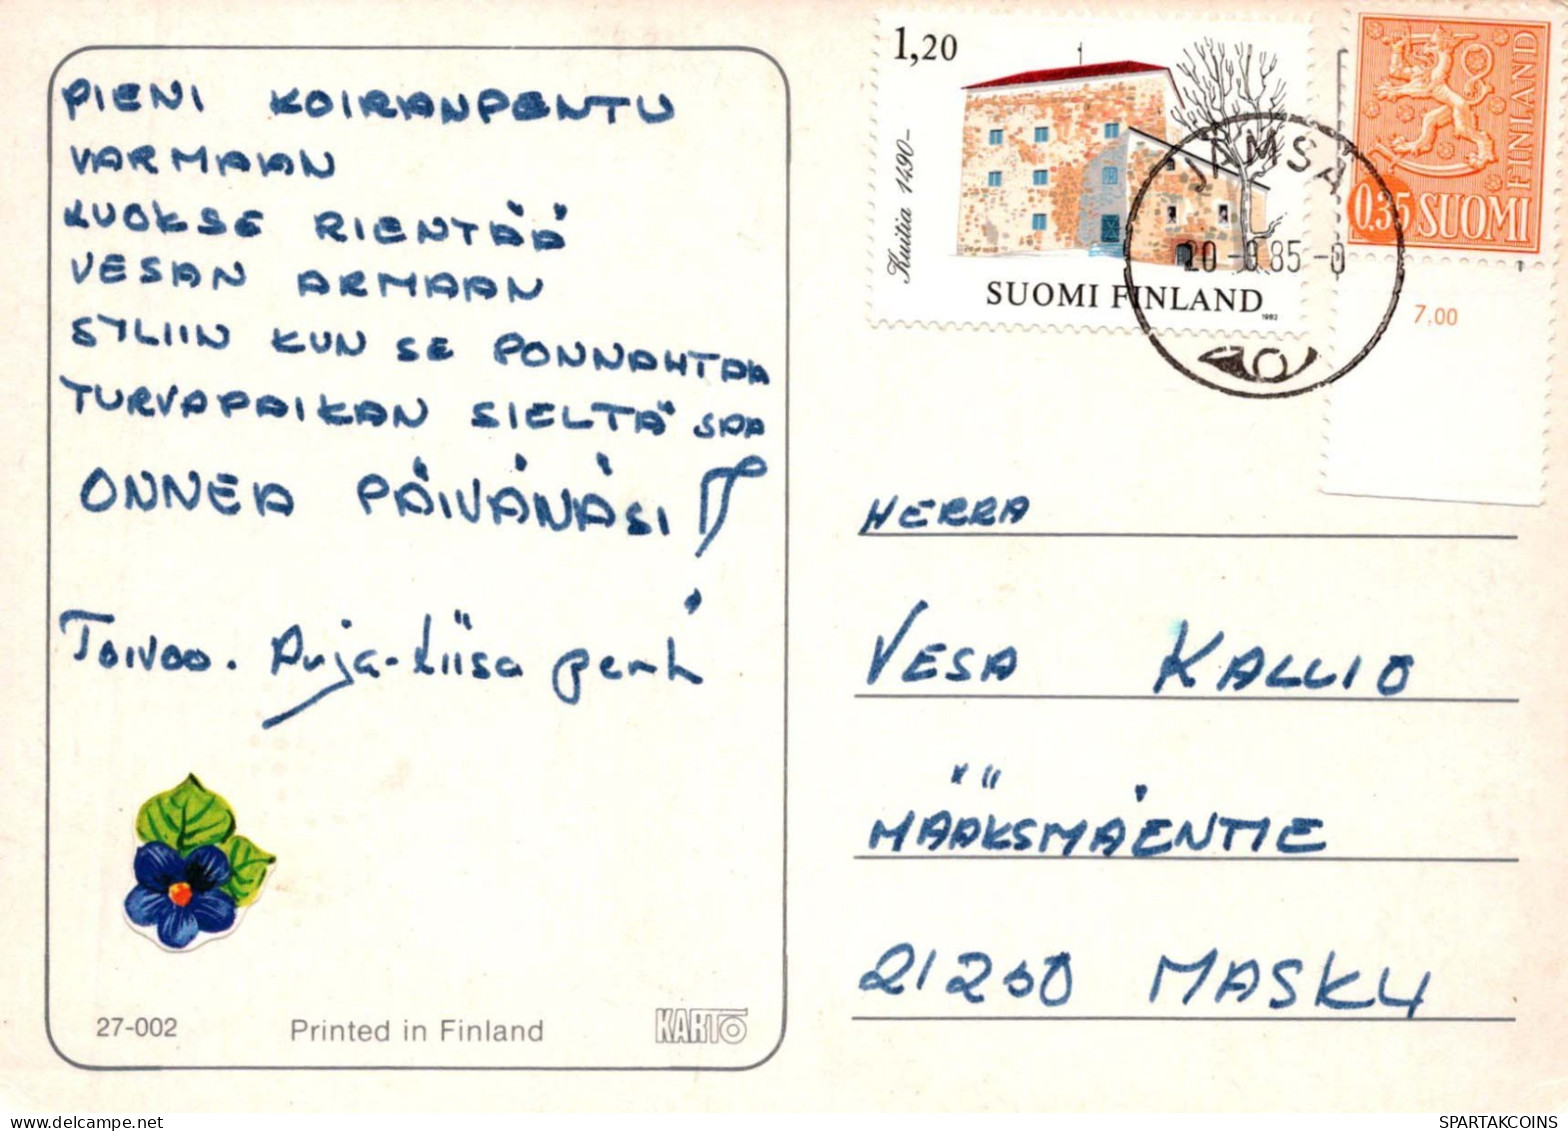 PIENI KOIRANPENTU
VARMAAN
LUOKSE RIENTÄÄ
VESAN ARMAAN
SYLIIN KUN SE PONNAHTAA
TURVAPAIKAN SIELTÄ SAA
ONNEA PÄIVÄNÄSI!
Toivoo. Anja-Liisa
27-002 Printed in Finland KARTO
1,20
Kuitia 1490-
SUOMI FINLAND
1982
JÄMSÄ
85
FINLAND
0.35 SUOMI
1
7,00
HERRA
VESA KALLIO
MÄÄKSMÄENTIE
21250 MASKU
SPARTAKCOINS